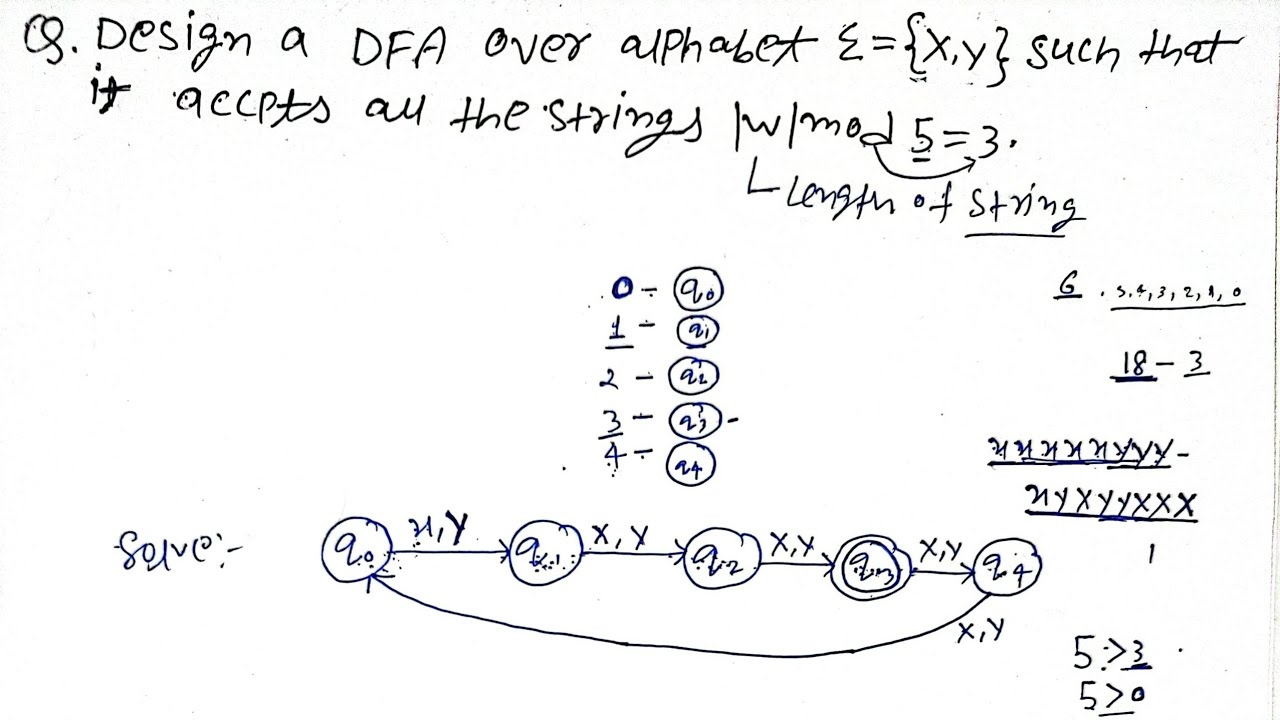 Q. Design a DFA over alphabet Σ={X,Y} such that
it accpts all the strings |w|mod 5=3.
Length of string
0 - q0
1 - q1
2 - q2
3 - q3 -
4 - q4
6 . 5,4,3,2,1,0
18 - 3
xxxxxxyyy -
xyxyyxxx
1
Solve:-
q0 x,y q1 x,y q2 x,y q3 x,y q4
x,y
5>3
5>0